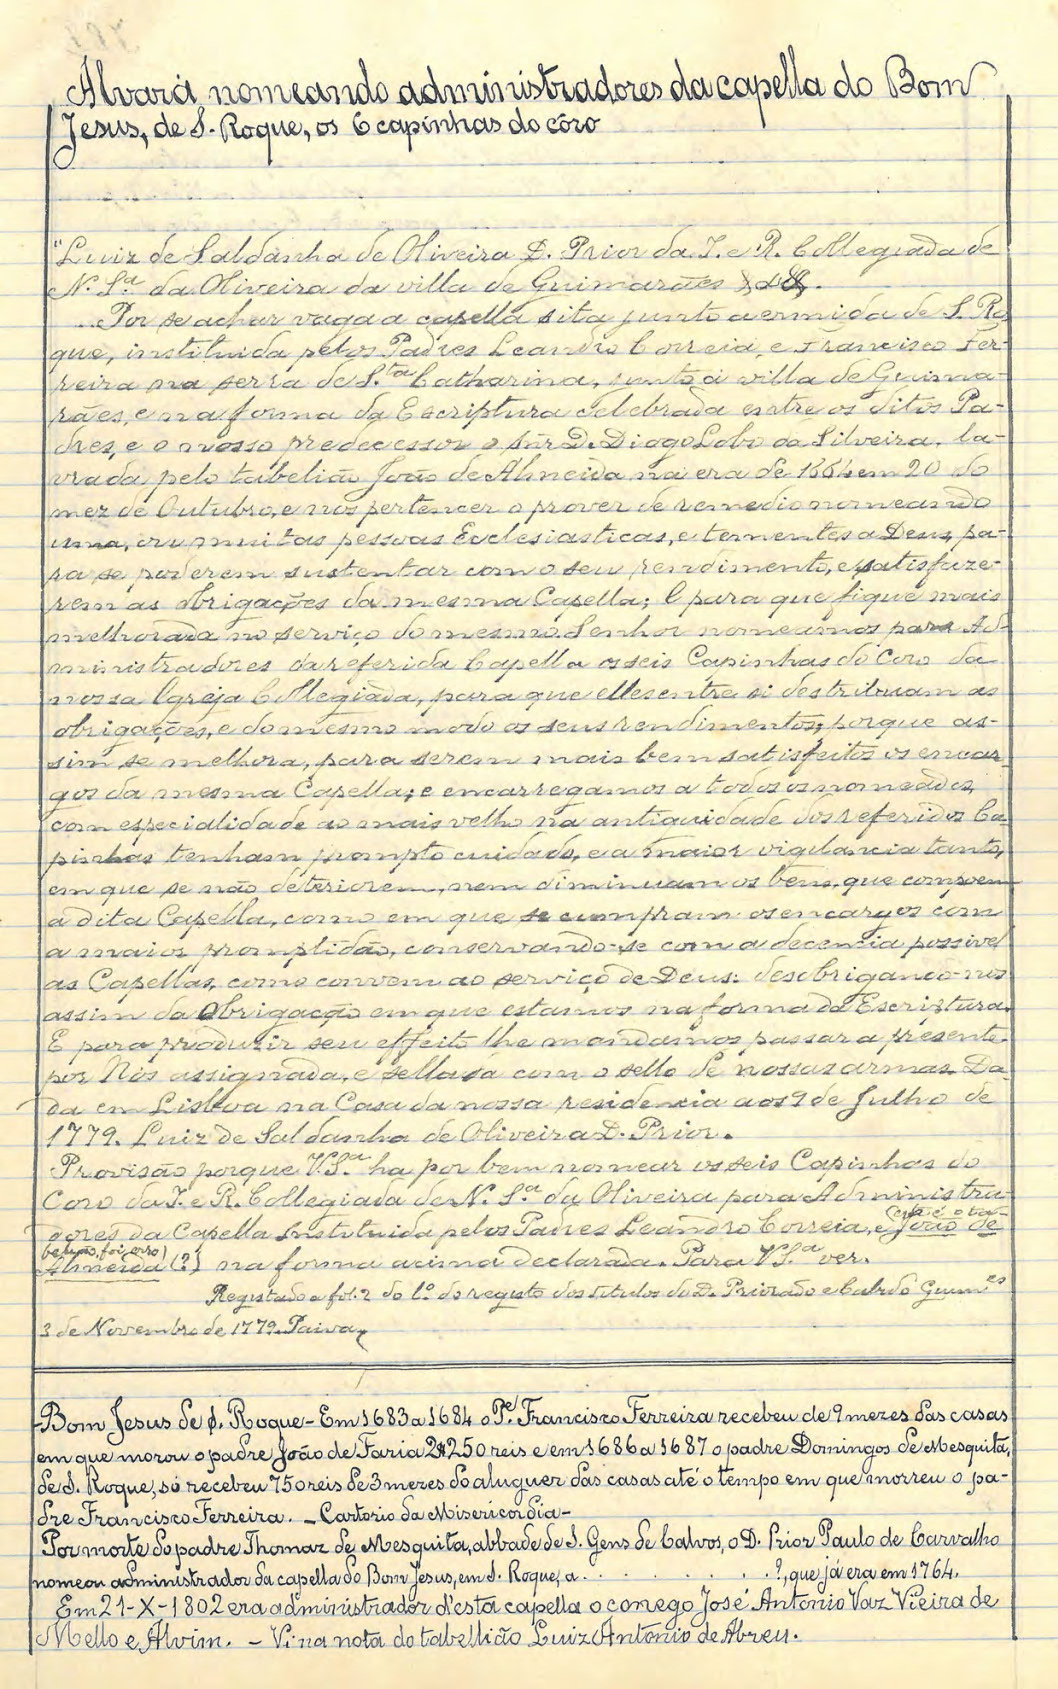 Alvará nomeando administradores da capella do Bom
Jesus, de S. Roque, os 6 capinhas do côro
"Luiz de Saldanha de Oliveira D. Prior da I. e R. Collegiada de
N. S.ª da Oliveira da villa de Guimarães
Por se achar vaga a capella sita junto a ermida de S. Ro
que, instituida pelos Padres Leandro Correia, e Francisco Fer-
reira na serra de S.ta Catharina, junto á villa de Guima-
rães, e na forma da Escriptura celebrada entre os ditos Pa-
dres, e o nosso predecessor o snr D. Diogo Lobo da Silveira, la-
vrada pelo tabelião João de Almeida na era de 1664 em 20 do
mez de Outubro, e nos pertencer o prover de remedio nomeando
uma, ou muitas pessoas Ecclesiasticas, e tementes a Deus, pa-
ra se poderem sustentar com o seu rendimento, e satisfaze-
rem as obrigações da mesma Capella; E para que fique mais
melhorada no serviço do mesmo Senhor nomeamos para Ad-
ministradores da referida Capella os seis Capinhas do Coro da
nossa Igreja Collegiada, para que elles entre si destribuam as
obrigações, e do mesmo modo os seus rendimentos, porque as-
sim se melhora, para serem mais bem satisfeitos os encar-
gos da mesma Capella; e encarregamos a todos os nomeados,
com especialidade ao mais velho na antiguidade dos referidos Ca-
pinhas tenham prompto cuidado, e a maior vigilancia tanto,
em que se não deteriorem, nem diminuam os bens, que compoem
a dita Capella, como em que se cumpram os encargos com
a maior promptidão, conservando-se com a decencia possivel
as Capellas, como convem ao serviço de Deus: desobrigando-nos
assim da obrigação em que estamos na forma da Escriptura.
E para produzir seu effeito lhe mandamos passar a presente
por Nós assignada, e sellada com o sello de nossas armas. Da-
da em Lisboa na Casa da nossa residencia aos 9 de Julho de
1779. Luiz de Saldanha de Oliveira D. Prior.
Provisão porque V. S.ª ha por bem nomear os seis Capinhas do
Coro da I. e R. Collegiada de N. S.ª da Oliveira para Administra-
dores da Capella Instituida pelos Padres Leandro Correia, e João de
(este é o ta-
belião, foi erro)
Almeida (?) na forma acima declarada. Para V. S.ª ver.
Registado a fol. 2 do l.º do registo dos titulos do D. Priorado e Cab.do Guim.es
3 de Novembro de 1779. Paiva
-Bom Jesus de S. Roque- Em 1683 a 1684 o P.e Francisco Ferreira recebeu de 9 mezes das casas
em que morou o padre João de Faria 2$250 reis e em 1686 a 1687 o padre Domingos de Mesquita,
de S. Roque, só recebeu 750 reis de 3 mezes do aluguer das casas até o tempo em que morreu o pa-
dre Francisco Ferreira. - Cartorio da Misericordia-
Por morte do padre Thomaz de Mesquita, abbade de S. Gens de Calvos, o D. Prior Paulo de Carvalho
nomeou administrador da capella do Bom Jesus, em S. Roque, a . . . . . . . . . . ?, que já era em 1764.
Em 21-X-1802 era administrador d'esta capella o conego José Antonio Vaz Vieira de
Mello e Alvim. - Vi na nota do tabellião Luiz Antonio de Abreu.